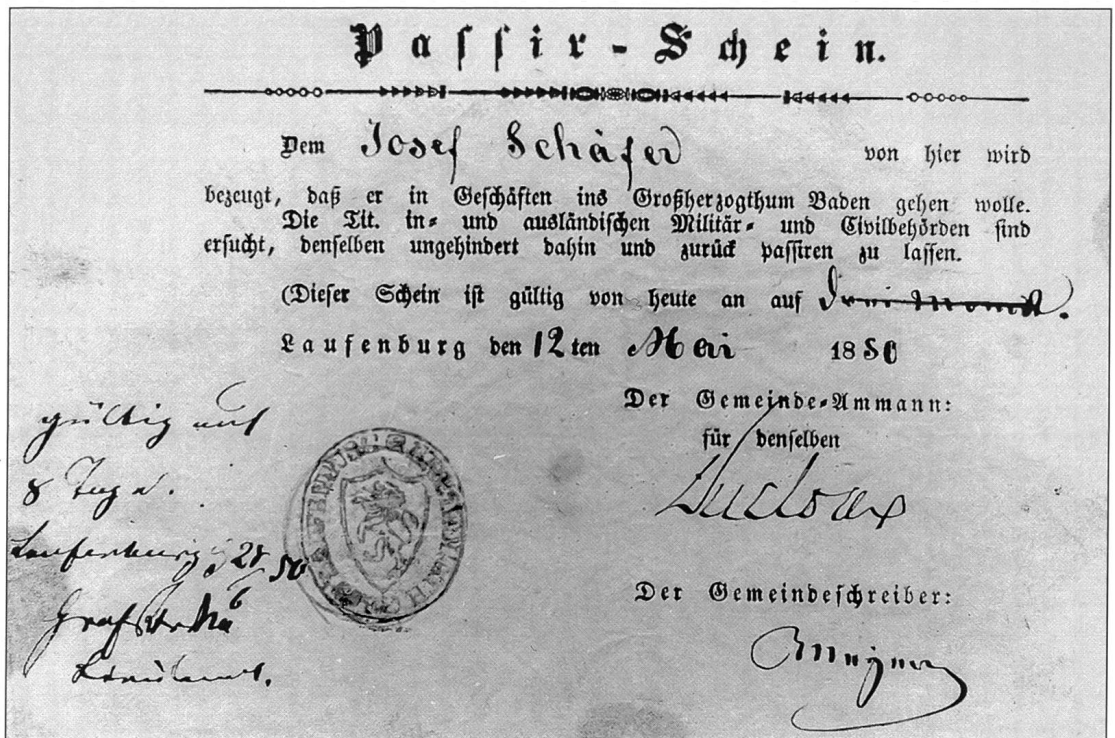 Passir-Schein.
Dem Josef Schäfer von hier wird
bezeugt, daß er in Geschäften ins Großherzogthum Baden gehen wolle.
Die Tit. in- und ausländischen Militär- und Civilbehörden sind
ersucht, denselben ungehindert dahin und zurück passiren zu lassen.
(Dieser Schein ist gültig von heute an auf drei Monat.)
Laufenburg den 12ten Mai 1850
Der Gemeinde-Ammann:
für denselben
gültig auf
8 Tage.
Laufenburg
Der Gemeindeschreiber: